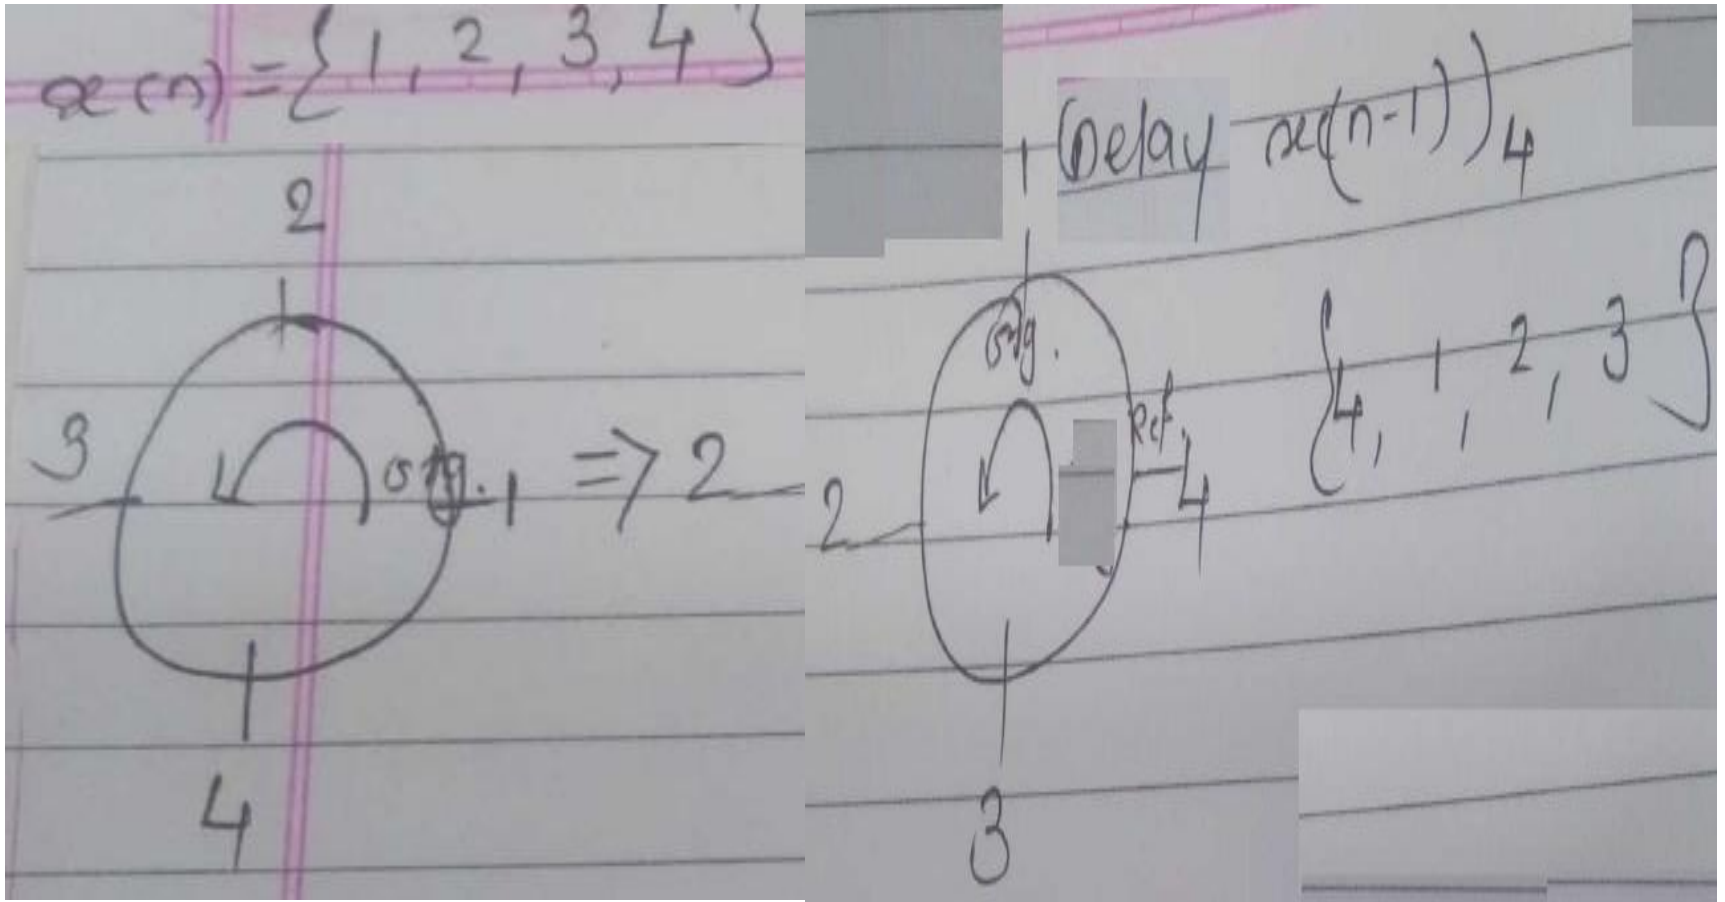 x(n) = {1, 2, 3, 4}
2
3
org. 1 => 2
4
1 (Delay x(n-1))4
org.
Ref.
2
4
{4, 1, 2, 3}
3